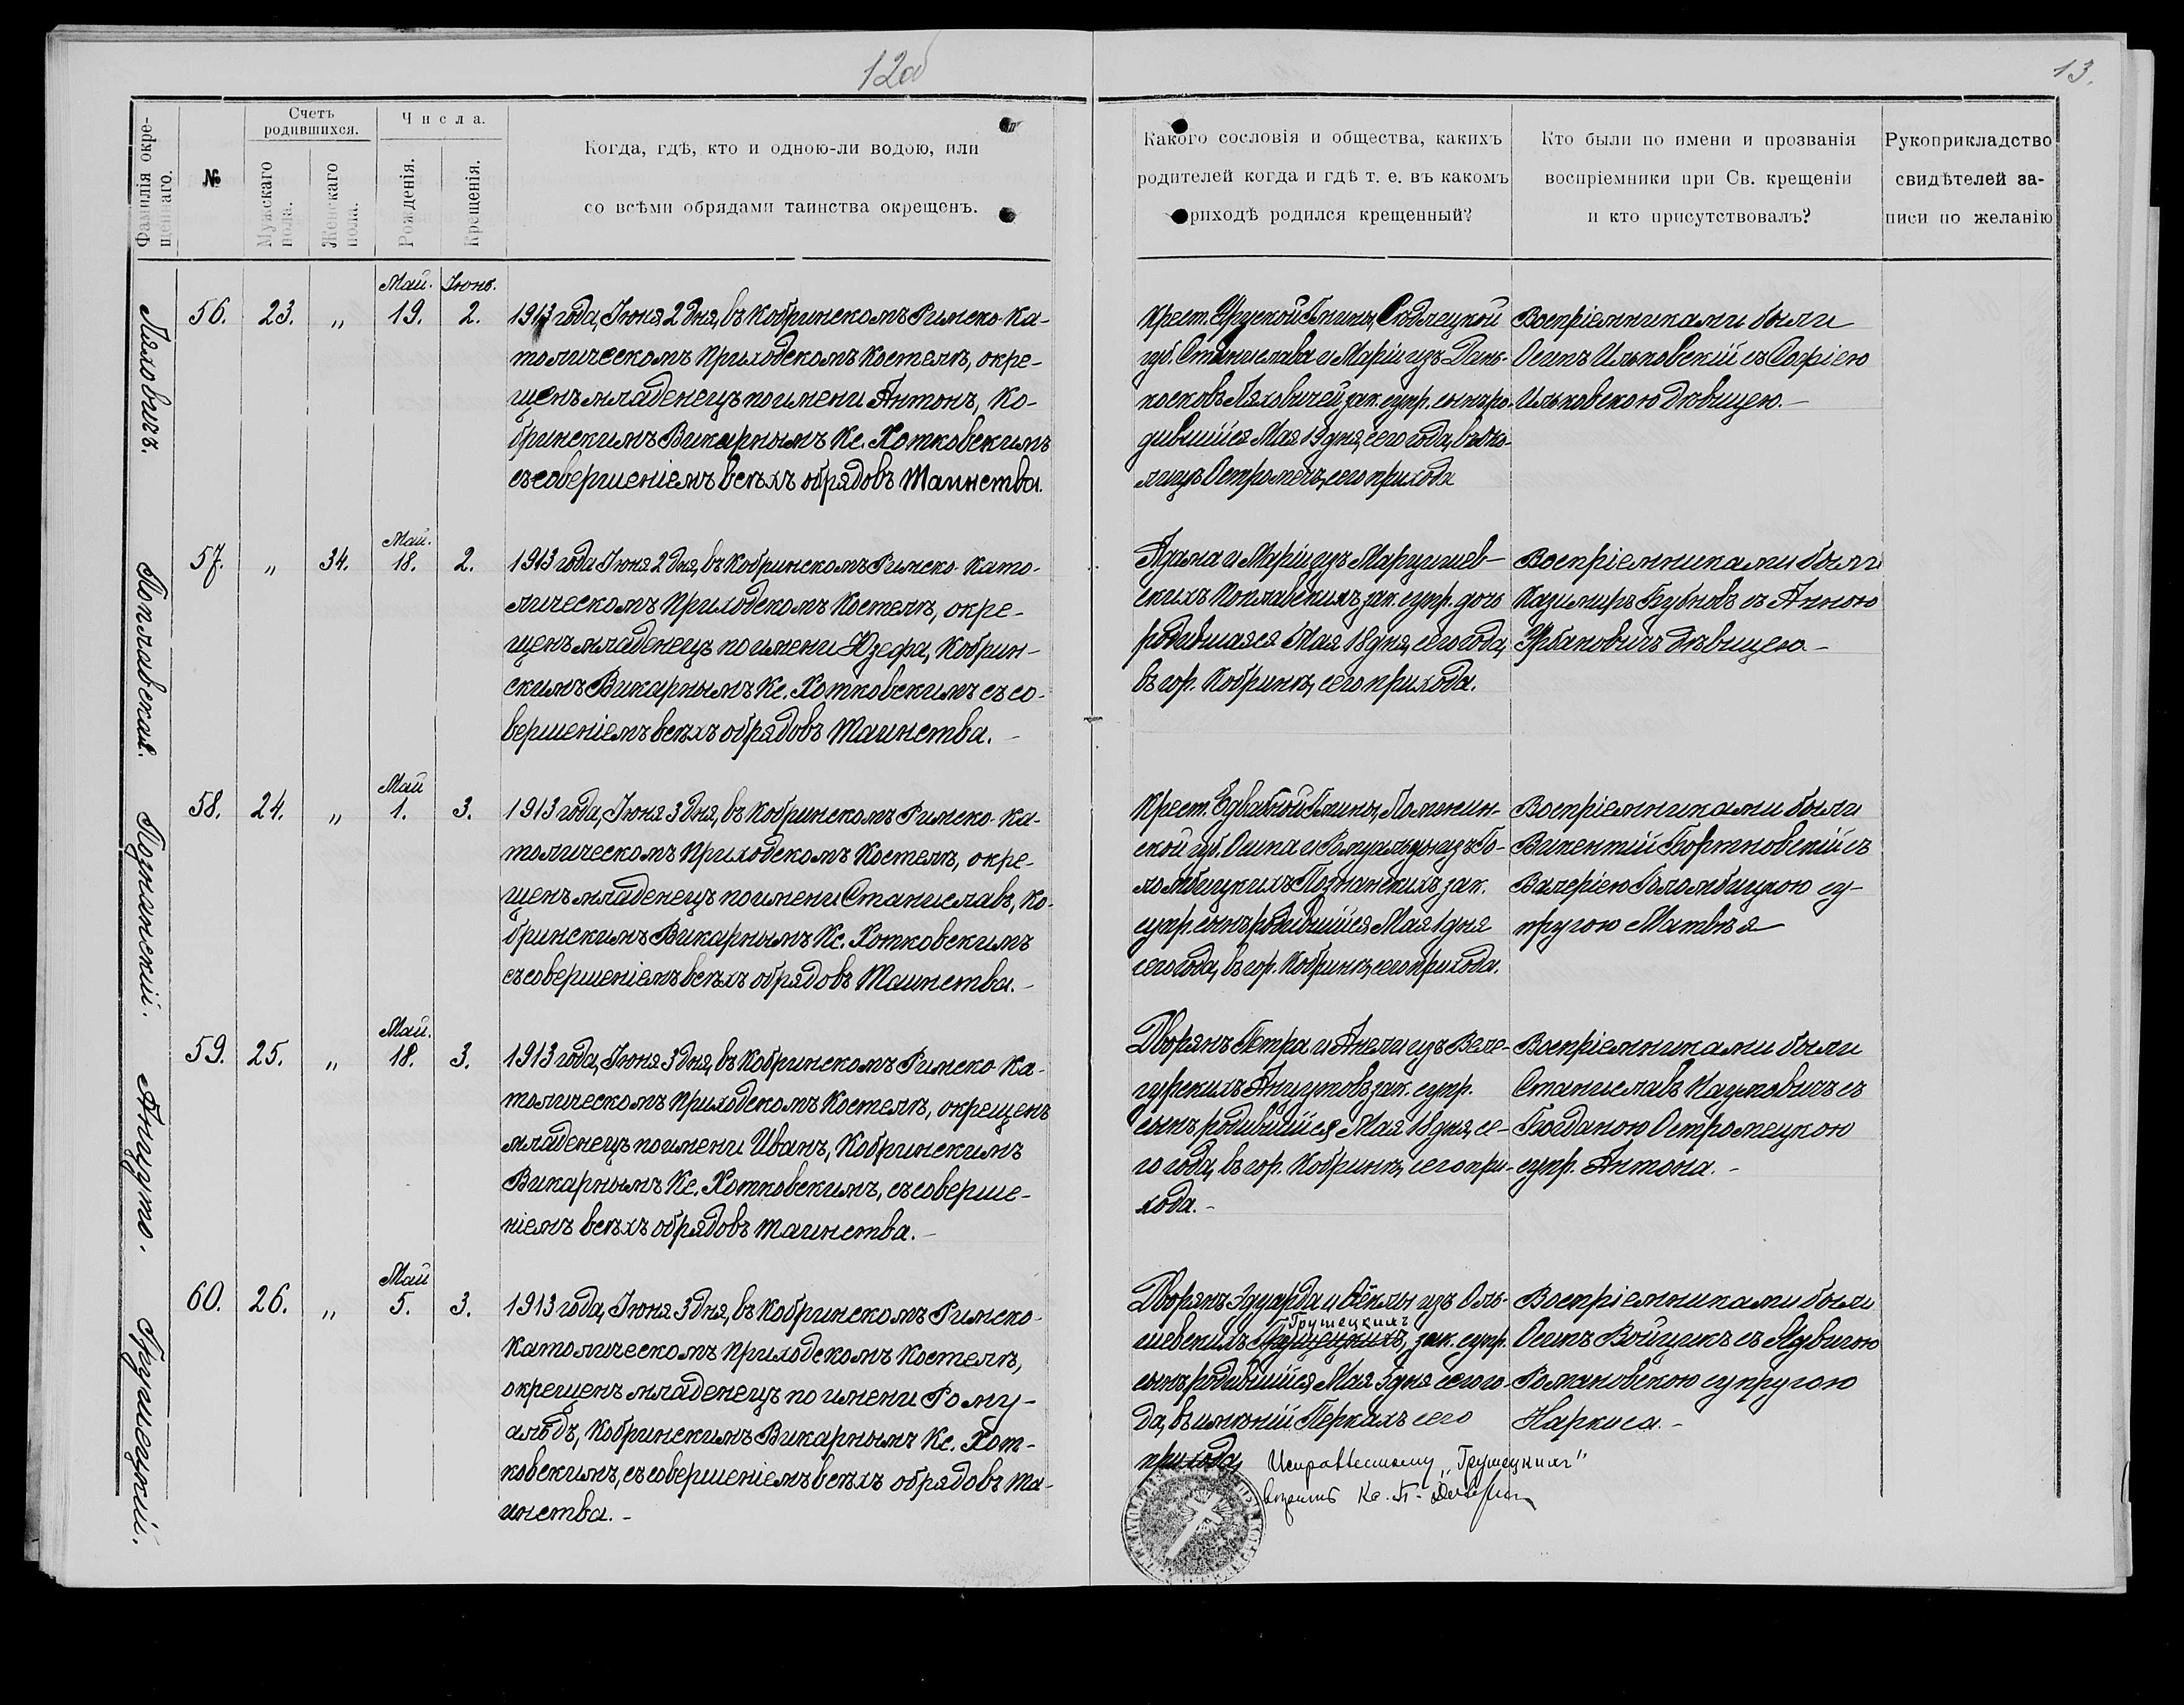 12об
13.
Фамилія окре-
щеннаго.
№
Счетъ
родившихся.
Мужскаго
пола.
Женскаго
пола.
Числа.
Рожденія.
Крещенія.
Когда, гдѣ, кто и одною-ли водою, или
со всѣми обрядами таинства окрещенъ.
Какого сословія и общества, какихъ
родителей когда и гдѣ т. е. въ какомъ
приходѣ родился крещенный?
Кто были по имени и прозванія
воспріемники при Св. крещеніи
и кто присутствовалъ?
Рукоприкладство
свидѣтелей за-
писи по желанію
Ляховичъ.
Май. Іюнь.
56. 23. „ 19. 2.
1913 года, Іюня 2 дня, въ Кобринскомъ Римско-Ка-
толическомъ Приходскомъ Костелѣ, окре-
щенъ младенецъ по имени Антонъ, Ко-
бринскимъ Викарнымъ Кс. Хотковскимъ
съ совершеніемъ всѣхъ обрядовъ Таинства.
Крест. Гмины, Сѣдлецкой
губ. Станислава и Маріи изъ Дань-
косковъ Ляховичей зак. супр. сынъ ро-
дившійся Мая 19 дня, сего года, въ око-
лицѣ Остромечъ, сего прихода
Воспріемниками были
Осипъ Ильковскій съ Софіею
Ильковскою дѣвицею.-
Поплавская.
Май.
57. „ 34. 18. 2.
1913 года Іюня 2 дня, въ Кобринскомъ Римско-Като-
лическомъ Приходскомъ Костелѣ, окре-
щенъ младенецъ по имени Юзефа, Кобрин-
скимъ Викарнымъ Кс. Хотковскимъ съ со-
вершеніемъ всѣхъ обрядовъ Таинства.-
Адама и Маріи изъ Марцишев-
скихъ Поплавскихъ зак. супр. дочь
родившаяся Мая 18 дня, сего года,
въ гор. Кобринѣ, сего прихода.
Воспріемниками были
Казимиръ Бубновъ съ Анною
Урбановичъ дѣвицею-
Познанскій.
Май
58. 24. „ 1. 3.
1913 года, Іюня 3 дня, въ Кобринскомъ Римско-Ка-
толическомъ Приходскомъ Костелѣ, окре-
щенъ младенецъ по имени Станиславъ, Ко-
бринскимъ Викарнымъ Кс. Хотковскимъ
съ совершеніемъ всѣхъ обрядовъ Таинства.-
Крест. Едвабной Гмины, Ломжин-
ской губ. Осипа и Ромуальды изъ Го-
ломбицкихъ Познанскихъ зак.
супр. сынъ родившійся Мая 1 дня
сего года, въ гор. Кобринѣ, сего прихода.
Воспріемниками были
Викентій Бортновскій съ
Валеріею Голомбицкою су-
пругою Матвѣя-
Анцуто.
Май.
59. 25. „ 18. 3.
1913 года, Іюня 3 дня, въ Кобринскомъ Римско-Ка-
толическомъ Приходскомъ Костелѣ, окрещенъ
младенецъ по имени Иванъ, Кобринскимъ
Викарнымъ Кс. Хотковскимъ, съ соверше-
ніемъ всѣхъ обрядовъ таинства.-
Дворянъ Петра и Анели изъ Веле-
гурскихъ Анцутовъ зак. супр.
сынъ родившійся Мая 18 дня, се-
го года, въ гор. Кобринѣ, сего при-
хода.-
Воспріемниками были
Станиславъ Кацковичъ съ
Богданою Остромецкою
супр. Антона.-
Грушецкій.
Май
60. 26. „ 5. 3.
1913 года, Іюня 3 дня, въ Кобринскомъ Римско-
Католическомъ Приходскомъ Костелѣ,
окрещенъ младенецъ по имени Рому-
альдъ, Кобринскимъ Викарнымъ Кс. Хот-
ковскимъ, съ совершеніемъ всѣхъ обрядовъ Та-
инства.-
Дворянъ Эдуарда и Ѳеклы изъ Оль-
Грушецкихъ
шевскихъ зак. супр.
сынъ родившійся Мая 5 дня сего го-
да, въ имѣніи Перкахъ сего
прихода,
Исправленному „Грушецкихъ"
Воспріемниками были
Осипъ Войцикъ съ Ядвигою
Романовскою супругою
Наркиса.-